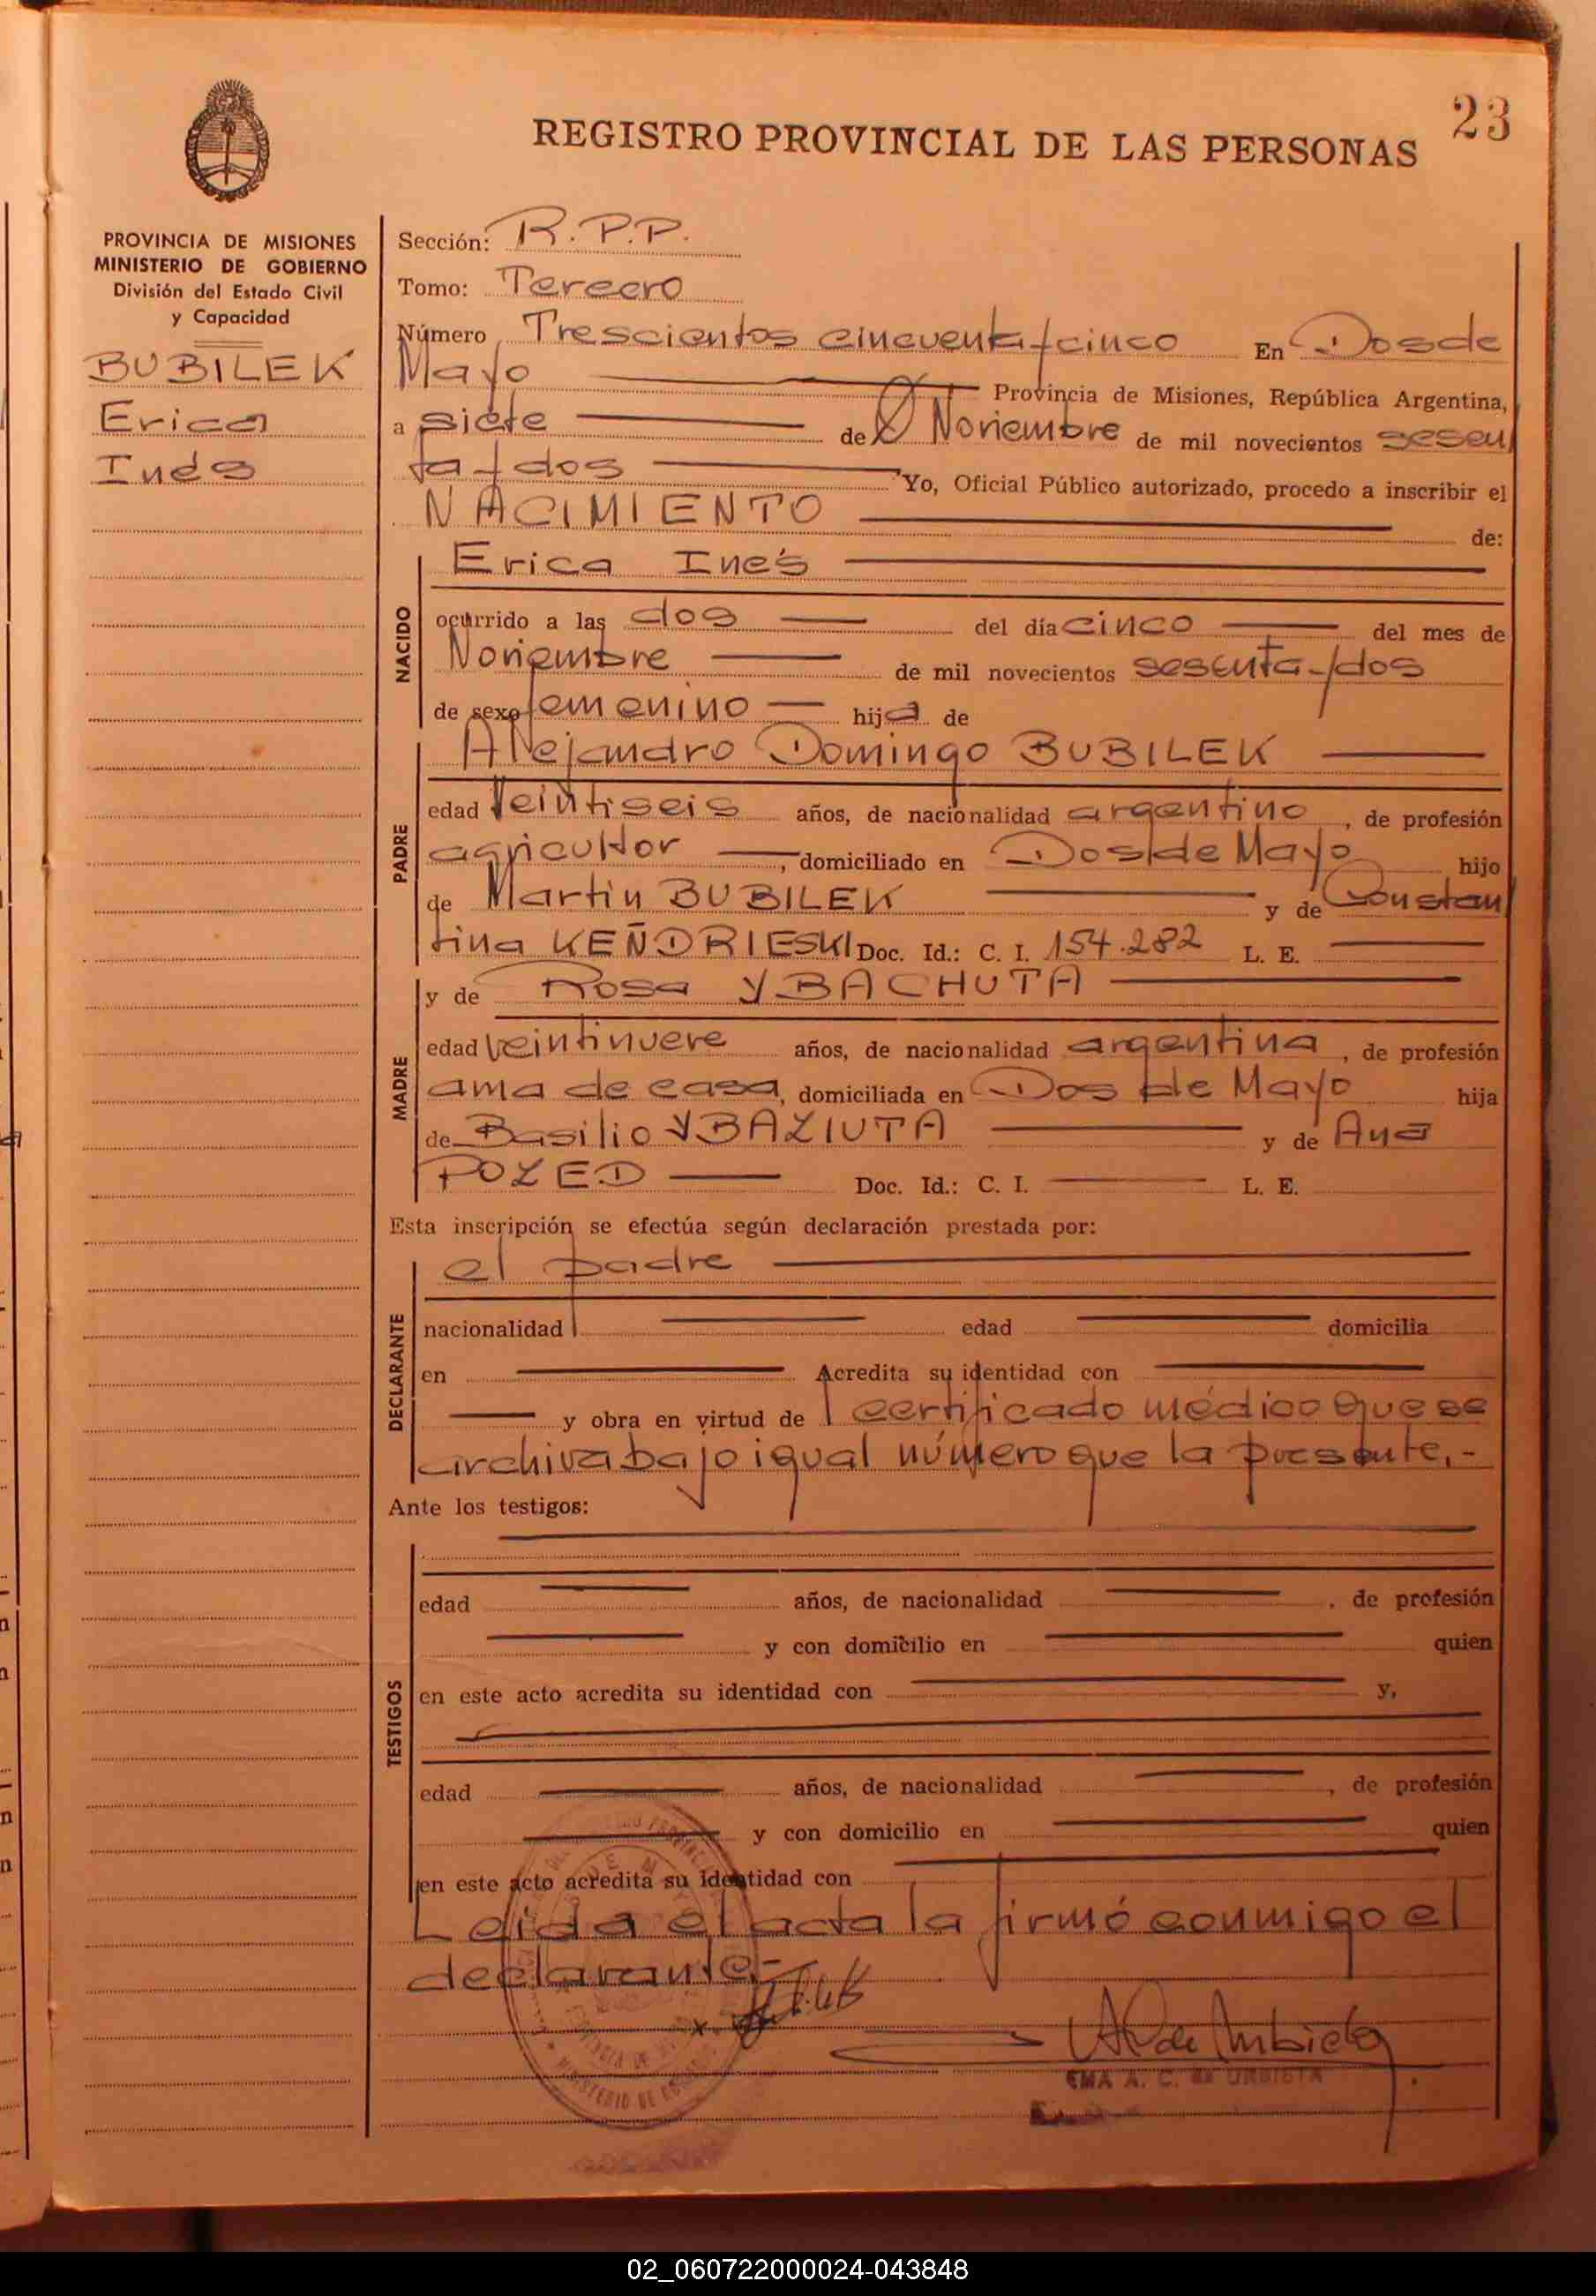 23
REGISTRO PROVINCIAL DE LAS PERSONAS
PROVINCIA DE MISIONES
MINISTERIO DE GOBIERNO
División del Estado Civil
y Capacidad
BUBILEK
Erica
Inés
Sección: R.P.P.
Tomo: Tercero
Número Trescientos cincuenta y cinco En Dos de
Mayo Provincia de Misiones, República Argentina,
a siete de Noviembre de mil novecientos sesen
ta y dos Yo, Oficial Público autorizado, procedo a inscribir el
NACIMIENTO de:
NACIDO
Erica Inés
ocurrido a las dos del día cinco del mes de
Noviembre de mil novecientos sesenta y dos
de sexo femenino hija de
PADRE
Alejandro Domingo BUBILEK
edad veintiseis años, de nacionalidad argentino, de profesión
agricultor, domiciliado en Dos de Mayo hijo
de Martin BUBILEK y de Constan
tina KEÑDRIESKI Doc. Id.: C. I. 154.282 L. E.
MADRE
y de Rosa YBACHUTA
edad veintinueve años, de nacionalidad argentina, de profesión
ama de casa, domiciliada en Dos de Mayo hija
de Basilio YBAZIUTA y de Ana
POZED Doc. Id.: C. I. L. E.
Esta inscripción se efectúa según declaración prestada por:
DECLARANTE
el padre
nacionalidad edad domicilia
en Acredita su identidad con
y obra en virtud de certificado médico que se
archiva bajo igual número que la presente.-
Ante los testigos:
TESTIGOS
edad años, de nacionalidad , de profesión
y con domicilio en quien
en este acto acredita su identidad con y,
edad años, de nacionalidad , de profesión
y con domicilio en quien
en este acto acredita su identidad con
Leida el acta la firmó conmigo el
declarante.-
EMA A. C. de URBIETA
02_060722000024-043848